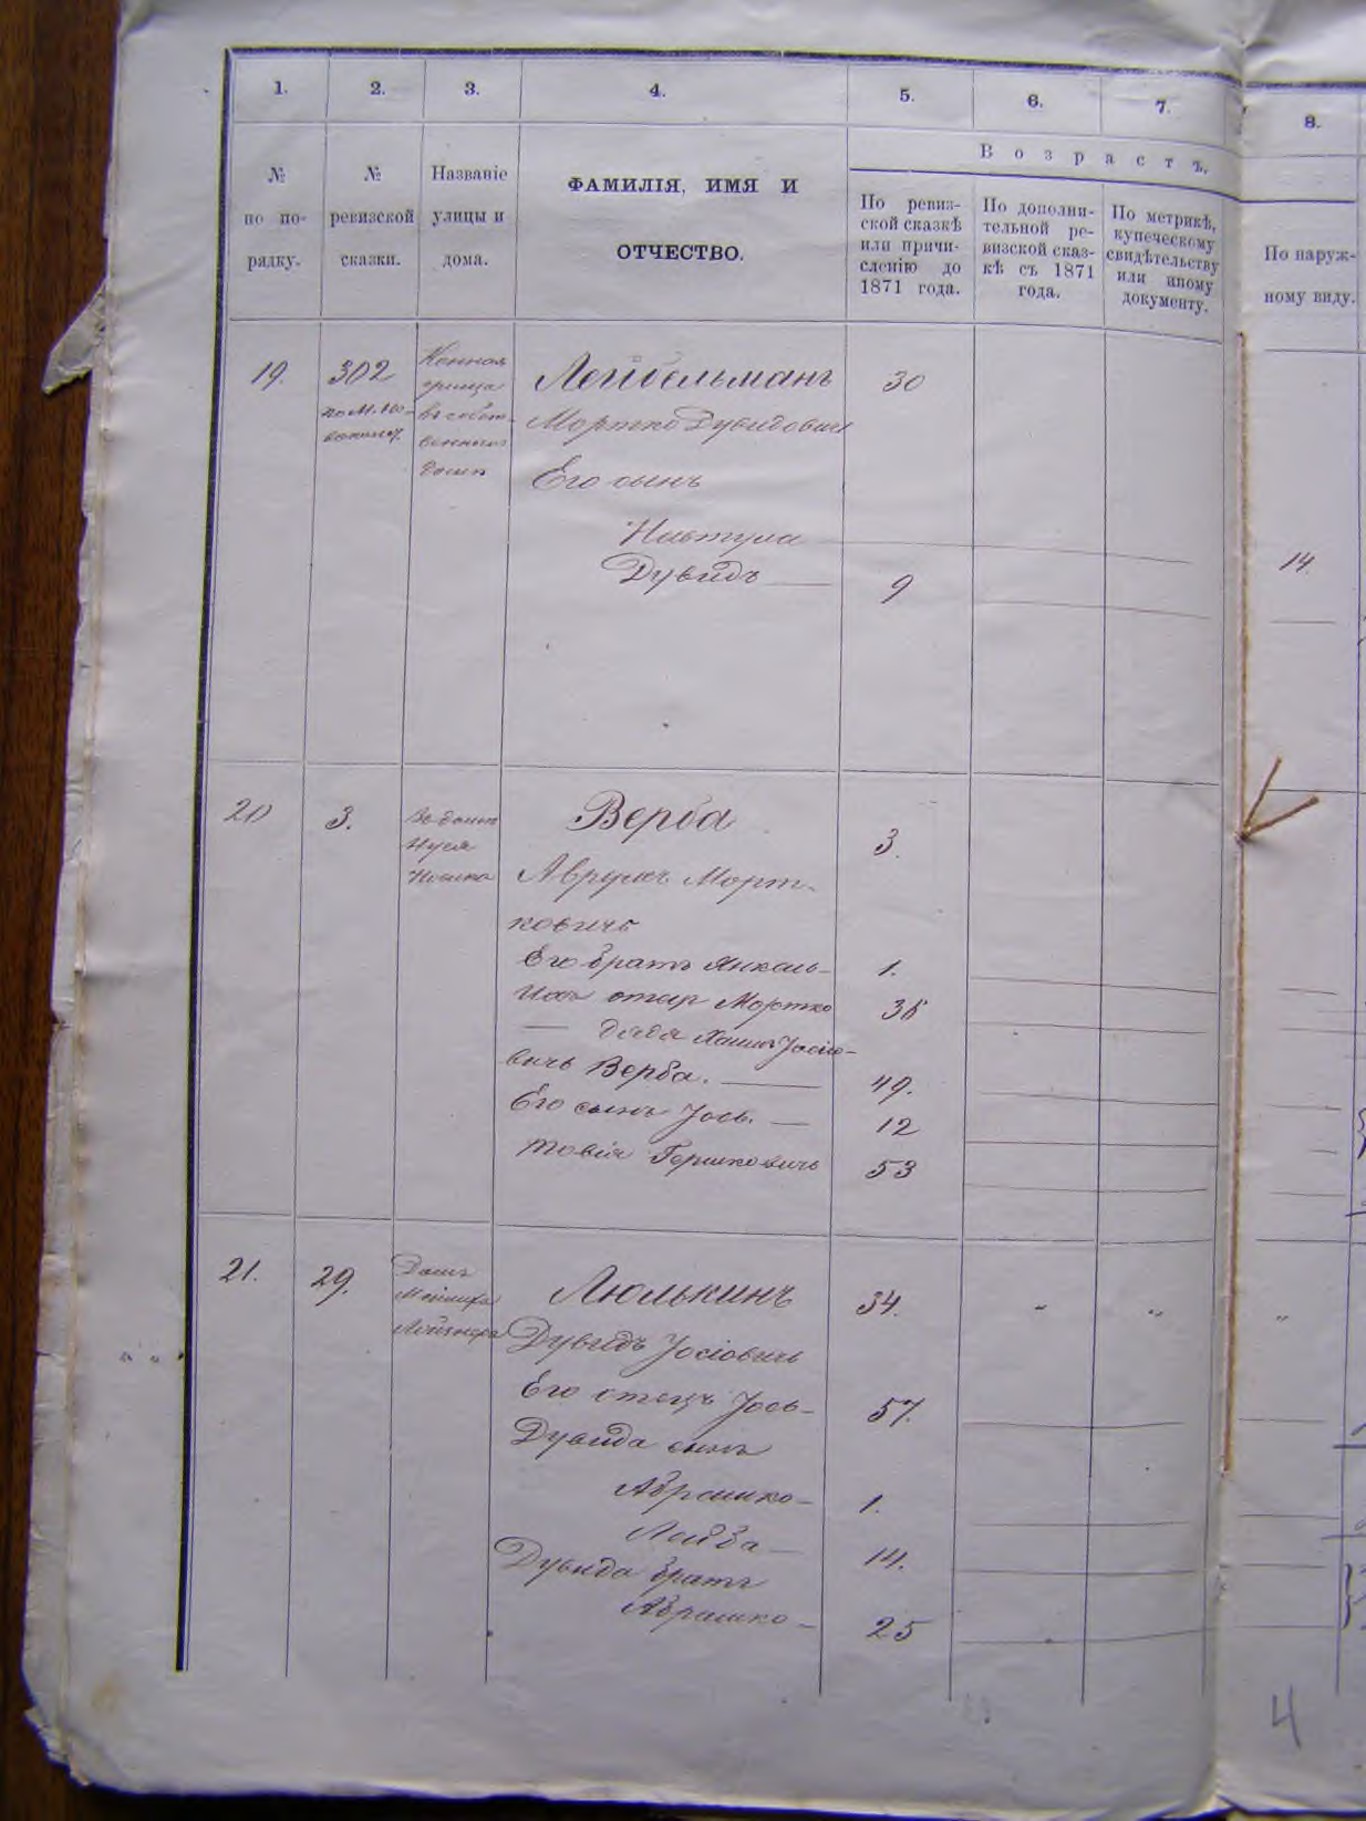 1. 2. 3. 4. 5. 6. 7. 8.
Возрастъ.
№ по по-рядку.
№ ревизской сказки.
Названіе улицы и дома.
ФАМИЛІЯ, ИМЯ И
ОТЧЕСТВО.
По ревиз-
ской сказкѣ
или причи-
сленію до
1871 года.
По дополни-
тельной ре-
визской сказ-
кѣ съ 1871
года.
По метрикѣ,
купеческому
свидѣтельству
или иному
документу.
По наруж-
ному виду.
19. 302 Конная Лейбельманъ 30
улица
въ собст-
венномъ
домѣ
Мортко Дувидовичъ
Его сынъ
Нивтула 14
Дувидъ — 9
20 3. Въ домѣ Верба 3.
Нуся
Аврумъ Морт-
ковичъ
Его братъ Янкель- 1.
Ихъ отецъ Мортко 36
— дядя Хаимъ Іосіо-
вичъ Верба. — 49.
Его сынъ Іось. — 12
Товія Гершковичъ 53
21. 29. Домъ Люлькинъ 34. " " "
Дувидъ Іосіовичъ
Его отецъ Іось- 57.
Дувида сынъ
Абрашко- 1.
Лейба — 14.
Дувида братъ
Абрашко - 25
4